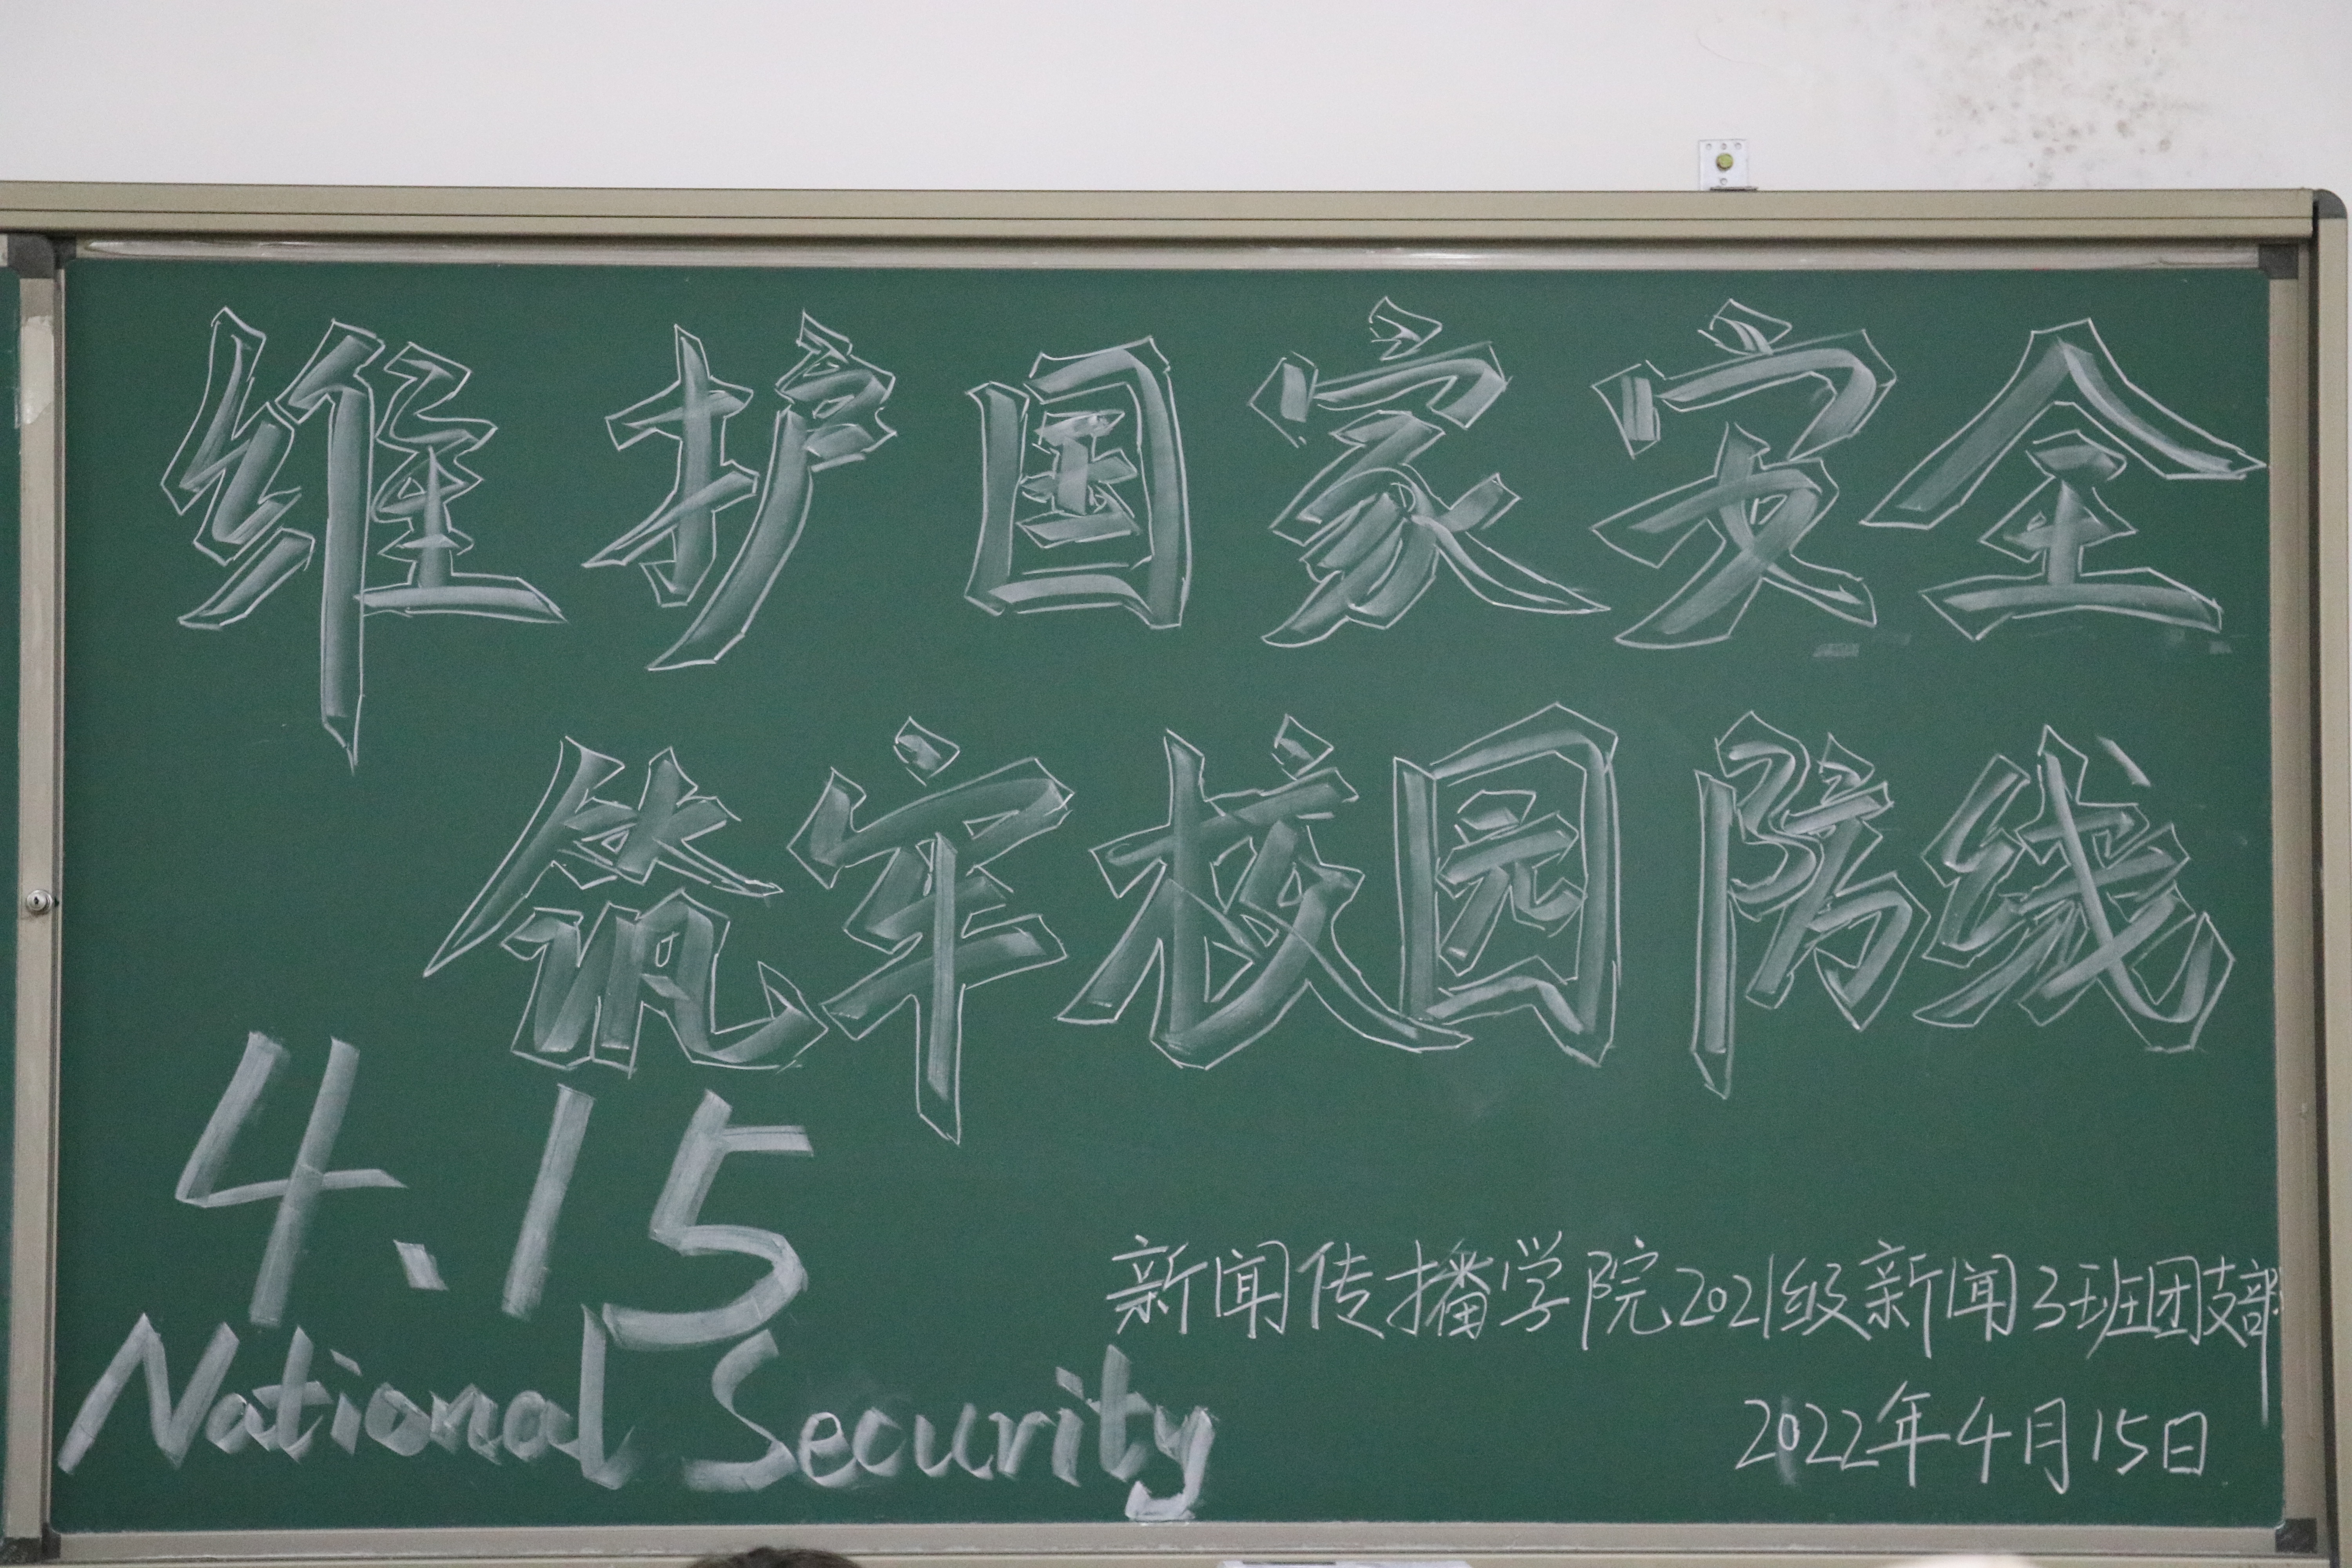 维护国家安全
筑牢校园防线
4.15
National Security
新闻传播学院2021级新闻3班团支部
2022年4月15日